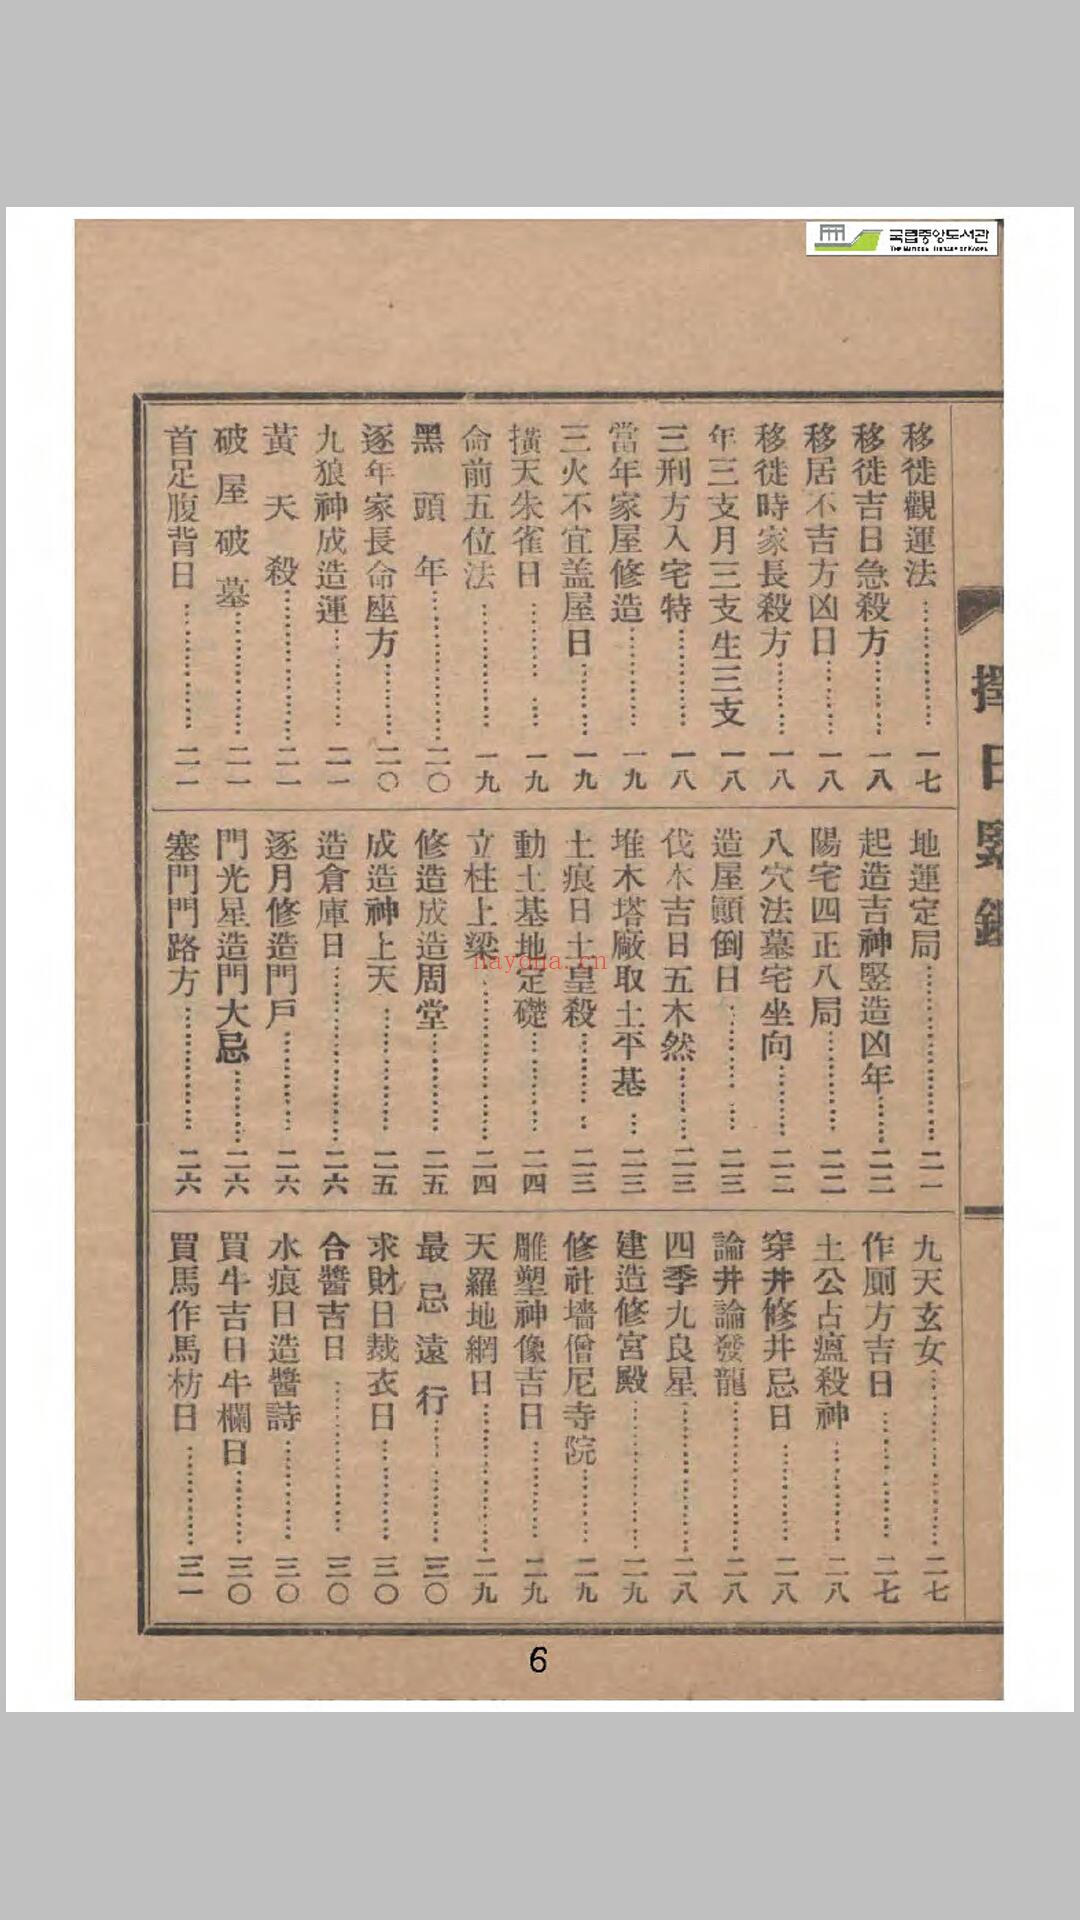 국립중앙도서관
THE NATIONAL LIBRARY OF KOREA
擇日
移徙觀運法…………一七
移徙吉日急殺方………一八
移居不吉方凶日………一八
移徙時家長殺方………一八
年三支月三支生三支 一八
三刑方入宅特…………一八
當年家屋修造…………一九
三火不宜盖屋日………一九
擴天朱雀日……………一九
命前五位法……………一九
黑頭年…………………二〇
逐年家長命座方………二〇
九狼神成造運…………二一
黃天殺…………………二一
破屋破墓………………二一
首足腹背日……………二一
地運定局………………二一
起造吉神竪造凶年……二二
陽宅四正八局…………二二
八穴法墓宅坐向………二二
造屋顚倒日……………二三
伐木吉日五木然………二三
堆木塔廠取土平基……二三
土痕日土皇殺…………二三
動土基地定礎…………二四
立柱上梁………………二四
修造成造周堂…………二五
成造神上天……………二五
造倉庫日………………二六
逐月修造門戶…………二六
門光星造門大忌………二六
塞門門路方……………二六
九天玄女………………二七
作厠方吉日……………二七
土公占瘟殺神…………二八
穿井修井忌日…………二八
論井論發龍……………二八
四季九良星……………二八
建造修宮殿……………二九
修社墻僧尼寺院………二九
雕塑神像吉日…………二九
天羅地網日……………二九
最忌遠行………………三〇
求財日裁衣日…………三〇
合醬吉日………………三〇
水痕日造醬詩…………三〇
買牛吉日牛欄日………三〇
買馬作馬枋日…………三一
nayona.cn
6